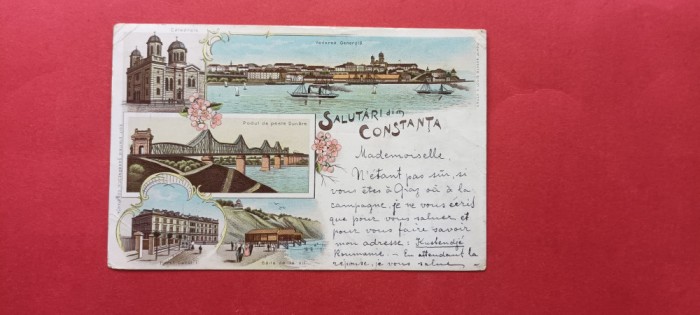 Catedrala
Vederea Generală
SALUTĂRI din
CONSTANȚA
Podul de peste Dunăre
Mademoiselle.
N'étant pas sûr, si
vous êtes à Graz où à la
campagne, je ne vous écris
que pour vous saluer et
pour vous faire savoir
mon adresse: Kustendjé
Roumanie. — En attendant la
réponse, je vous saluer